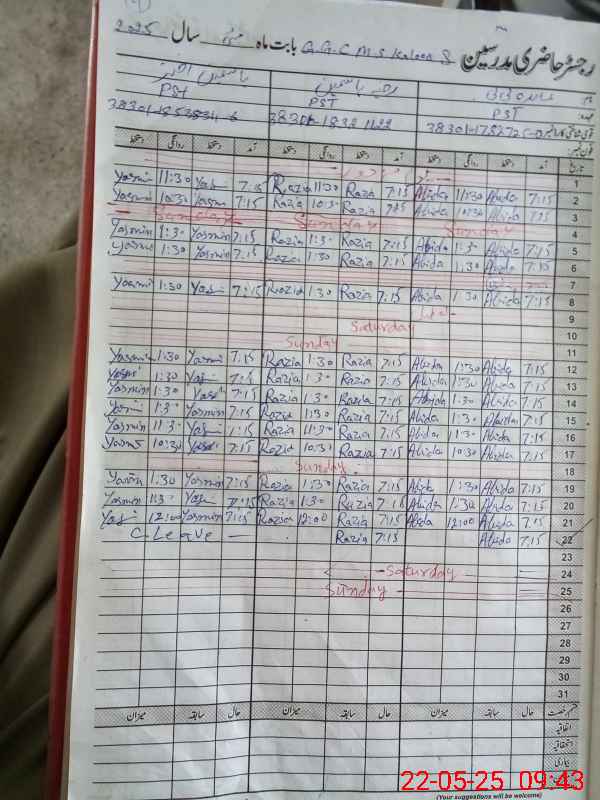 رجسٹر حاضری مدرسین G.G.C.M.S Kaloon 8 بابت ماہ مئی سال 2025
نام
PST PST PST
38301-1832 1122
تاریخ آمد دستخط روانگی دستخط آمد دستخط روانگی دستخط آمد دستخط روانگی دستخط
1
Yasmi 11:30 Yas 7:15 Razia 11:30 Razia 7:15 Abida 11:30 Abida 7:15 2
Yasmin 10:30 Yasmi 7:15 Razia 10:30 Razia 7:15 Abida 10:30 Abida 7:15 3
Sunday Sunday Sunday 4
Yasmin 1:30 Yasmin 7:15 Razia 1:30 Razia 7:15 Abida 1:30 Abida 7:15 5
Yasmi 1:30 Yasmin 7:15 Razia 1:30 Razia 7:15 Abida 1:30 Abida 7:15 6
7
Yasmi 1:30 Yas 7:15 Razia 1:30 Razia 7:15 Abida 1:30 Abida 7:15 8
9
Saturday 10
Sunday 11
Yasmin 1:30 Yasmi 7:15 Razia 1:30 Razia 7:15 Abida 1:30 Abida 7:15 12
Yasmi 1:30 Yas 7:15 Razia 1:30 Razia 7:15 Abida 1:30 Abida 7:15 13
Yasmin 1:30 Yas 7:15 Razia 1:30 Razia 7:15 Abida 1:30 Abida 7:15 14
Yasmi 1:30 Yasmin 7:15 Razia 1:30 Razia 7:15 Abida 1:30 Abida 7:15 15
Yasmin 11:30 Yas 7:15 Razia 11:30 Razia 7:15 Abida 11:30 Abida 7:15 16
Yasmi 10:30 Yas 7:15 Razia 10:30 Razia 7:15 Abida 10:30 Abida 7:15 17
Sunday 18
Yasmin 1:30 Yasmin 7:15 Razia 1:30 Razia 7:15 Abida 1:30 Abida 7:15 19
Yasmin 1:30 Yas 7:15 Razia 1:30 Razia 7:15 Abida 1:30 Abida 7:15 20
Yas 12:00 Yasmin 7:15 Razia 12:00 Razia 7:15 Abida 12:00 Abida 7:15 21
C Leave Razia 7:15 Abida 7:15 22
23
Saturday 24
Sunday 25
26
27
28
29
30
31
قسم رخصت حال سابقہ میزان حال سابقہ میزان حال سابقہ میزان
اتفاقیہ
استحقاقیہ
بیماری
22-05-25 09:43
(Your suggestions will be welcome)